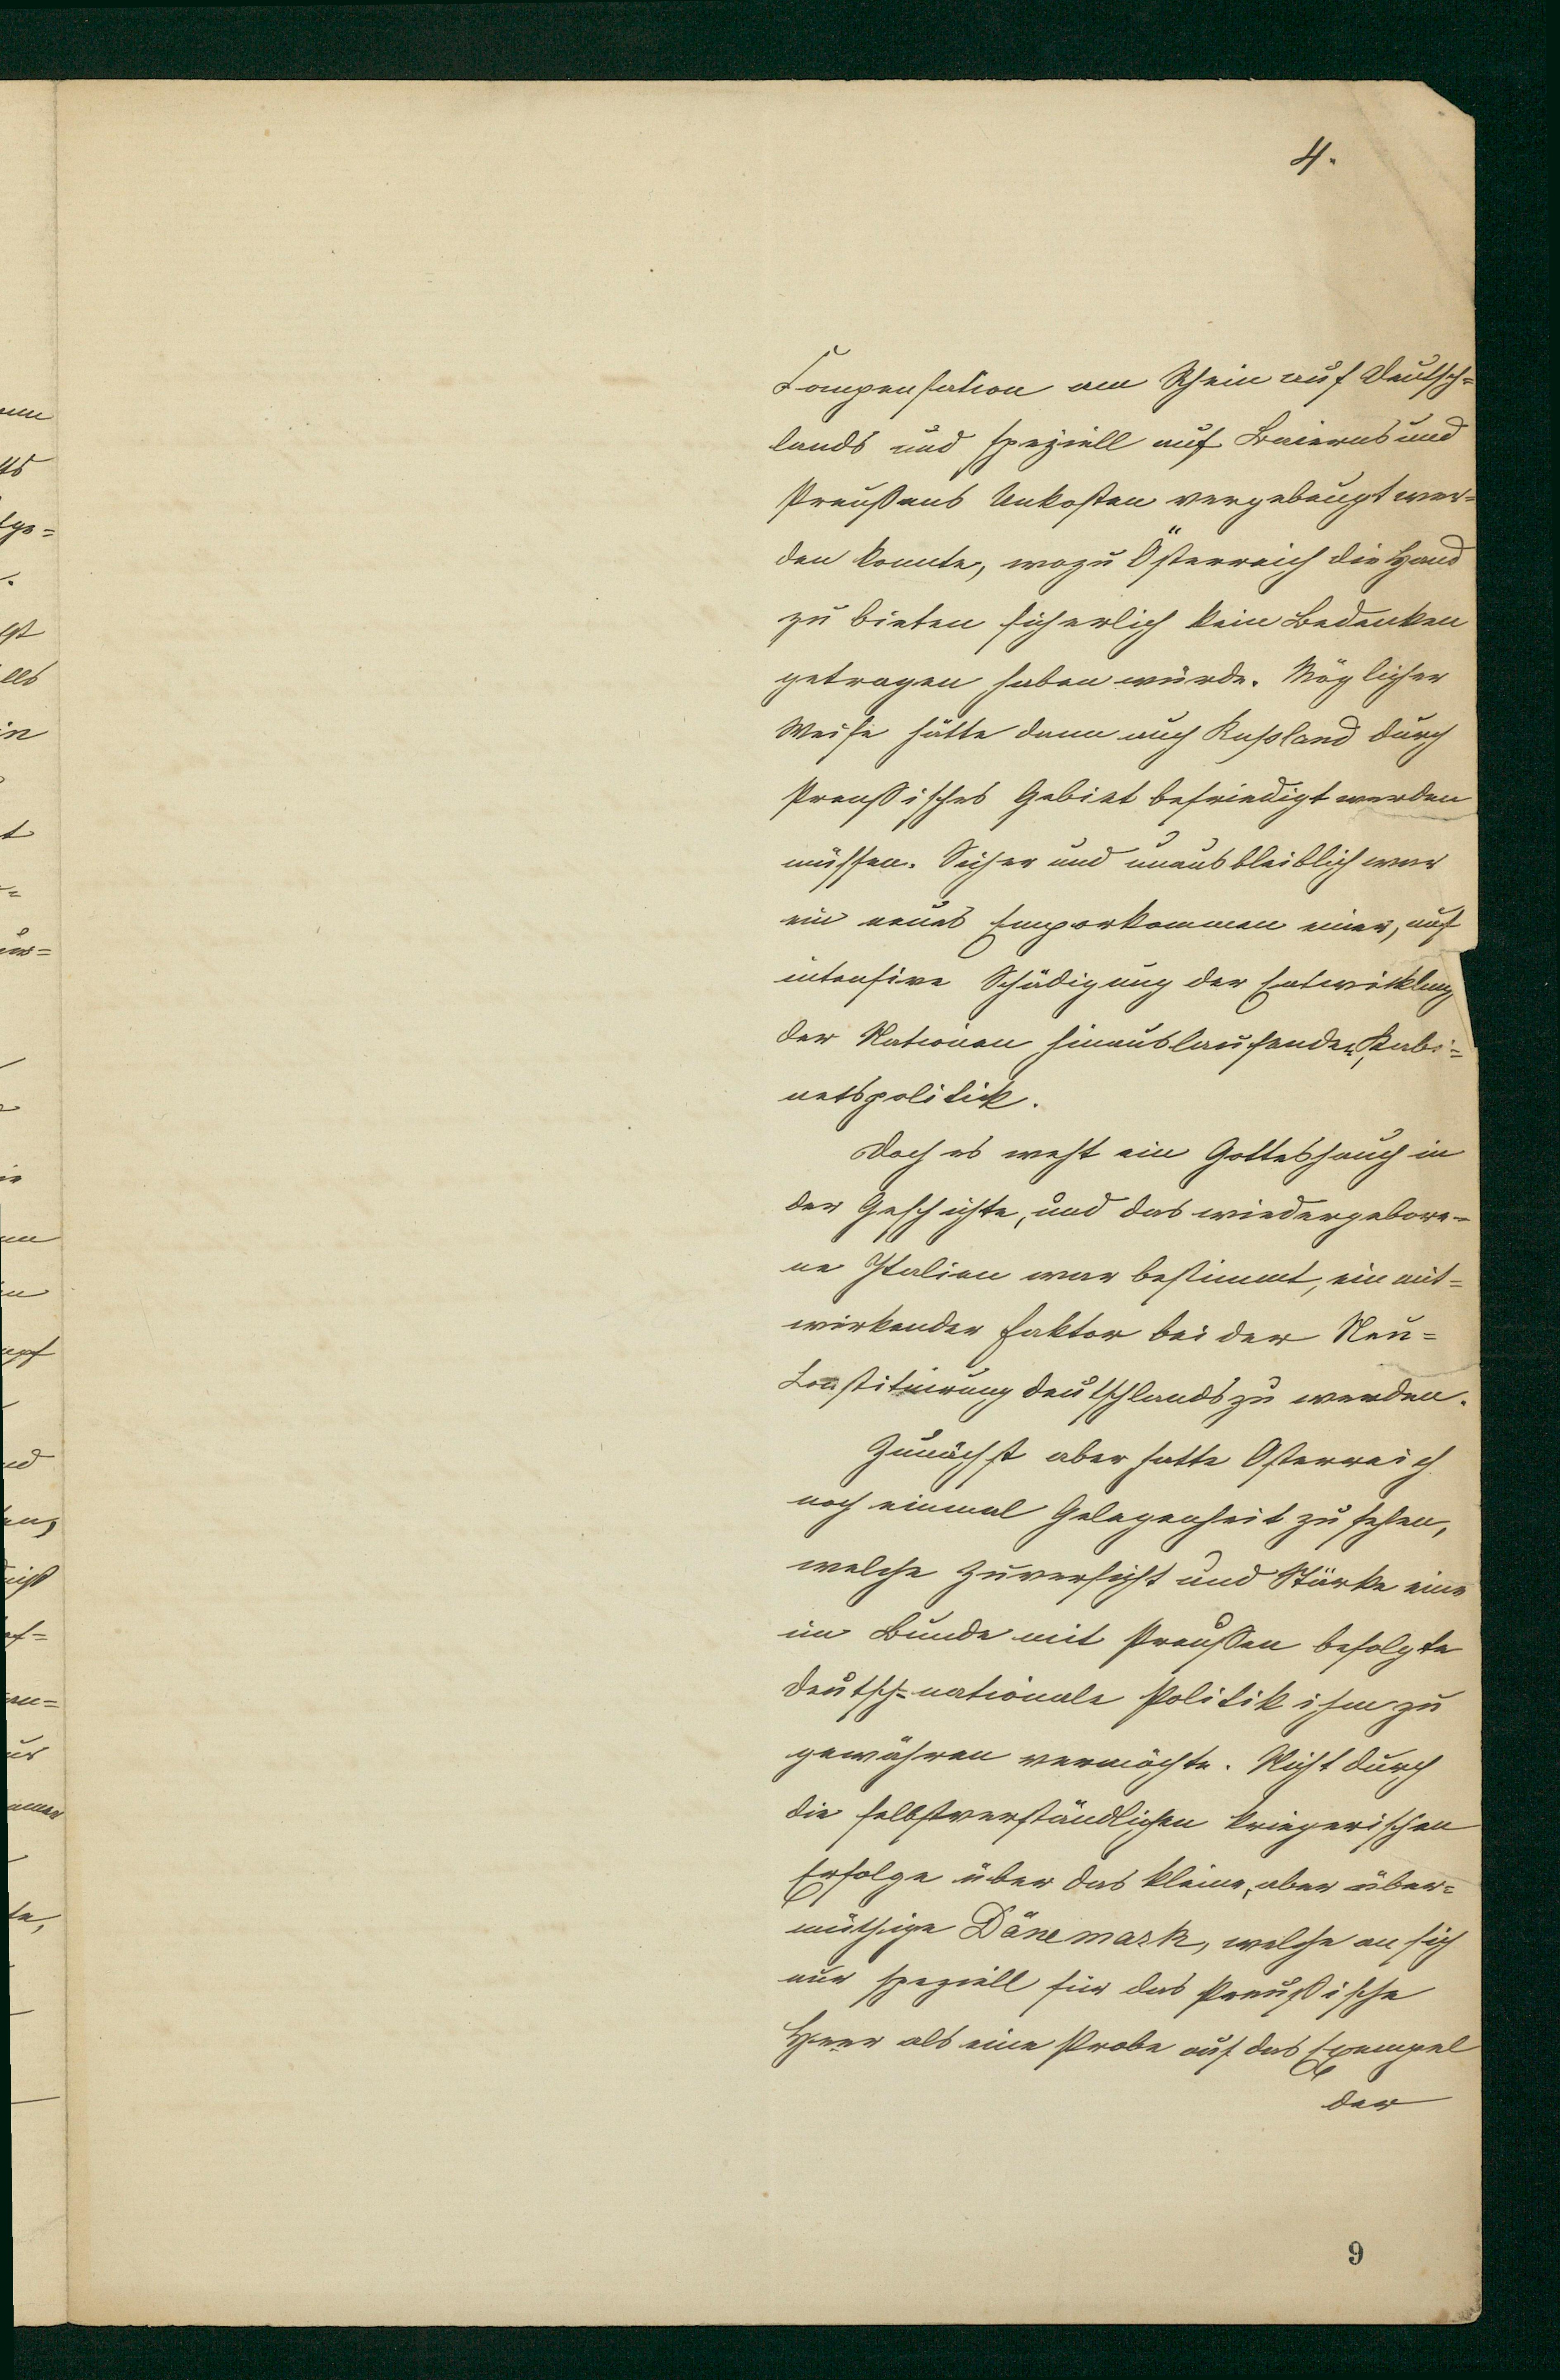 4.
Compensation am Rhein auf Deutsch=
lands und speziell auf Baierns und
Preußens Unkosten
den konnte, wozu Österreich die Hand
zu bieten sicherlich kein Bedenken
getragen haben würde. Möglicher
Weise hätte dann auch Rußland durch
Preußisches Gebiet befriedigt werden
müssen. Sicher und unausbleiblich war
ein neues Emporkommen einer, auf
intensive Schädigung der Entwicklung
der Nationen hinauslaufenden, Kabi=
netspolitik.
Doch es weht ein Gotteshauch in
der Geschichte, und das wiedergebore=
ne Italien war bestimmt, ein mit=
wirkender Faktor bei der Neu=
Constituirung Deutschlands zu werden.
Zunächst aber hatte Österreich
noch einmal Gelegenheit zu sehen,
welche Zuversicht und Stärke eine
im Bunde mit Preußen befolgte
deutsch=nationale Politik ihm zu
gewähren vermöchte. Nicht durch
die selbstverständlichen kriegerischen
Erfolge über das kleine, aber über=
müthige Dänemark, welche an sich
nur speziell für das Preußische
Heer als eine Probe auf das Exempel
der
9